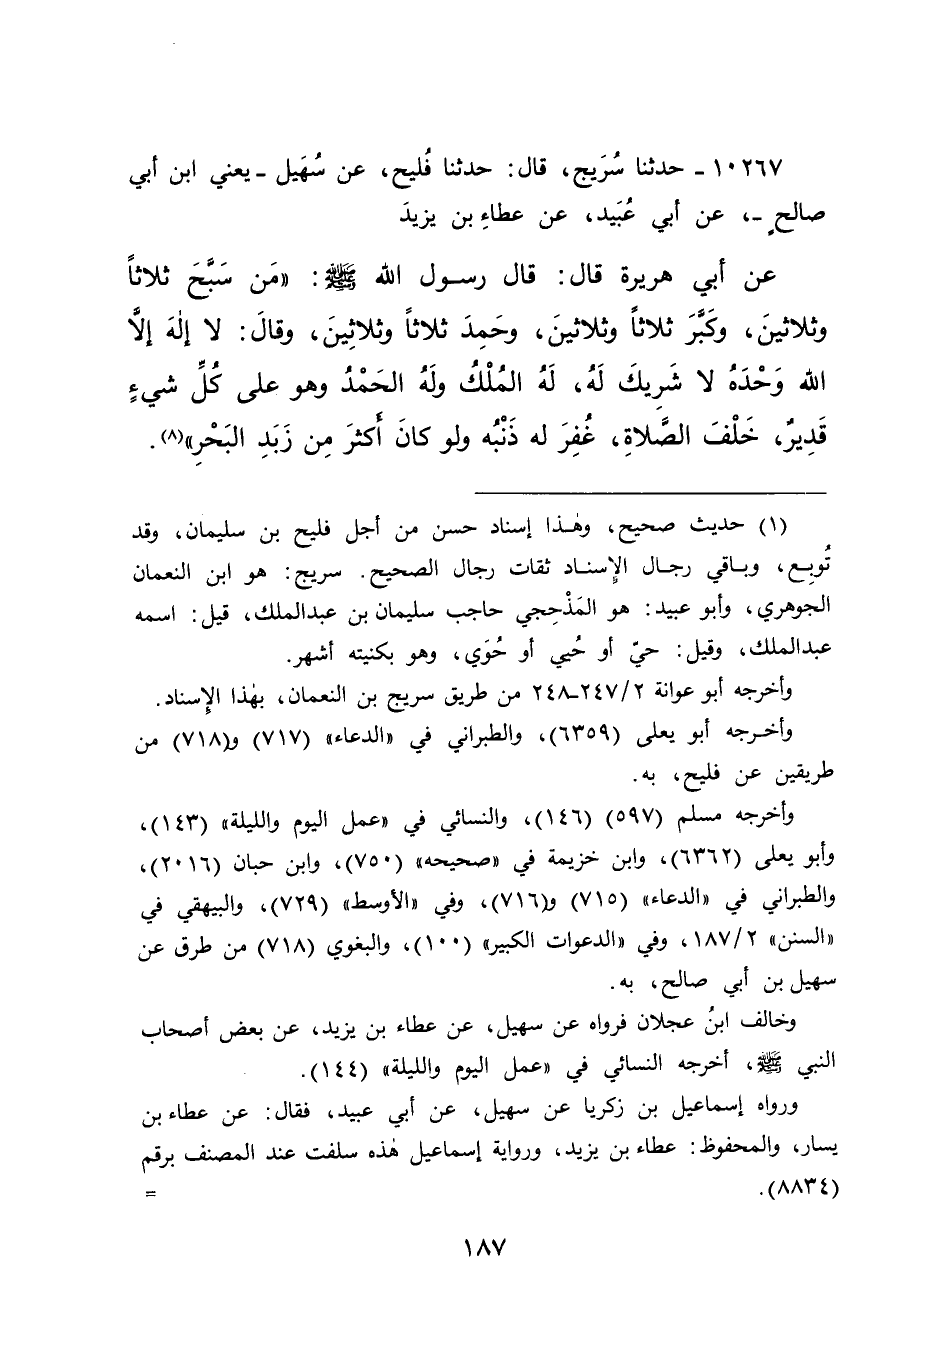 ١٠٢٦٧ - حدثنا سُرَيج، قال: حدثنا فُليح، عن سُهَيل - يعني ابن أبي
صالحٍ -، عن أبي عُبَيد، عن عطاءِ بن يزيدَ
عن أبي هريرة قال: قال رسول الله ﷺ: «مَن سَبَّحَ ثلاثاً
وثلاثينَ، وكَبَّرَ ثلاثاً وثلاثينَ، وحَمِدَ ثلاثاً وثلاثِينَ، وقالَ: لا إلٰهَ إلَّا
الله وَحْدَهُ لا شَرِيكَ لَهُ، لَهُ المُلْكُ ولَهُ الحَمْدُ وهو على كُلِّ شيءٍ
قَدِيرٌ، خَلْفَ الصَّلاةِ، غُفِرَ له ذَنْبُه ولو كانَ أَكثرَ مِن زَبَدِ البَحْرِ»(٨).
(١) حديث صحيح، وهٰذا إسناد حسن من أجل فليح بن سليمان، وقد
تُوبِع، وباقي رجال الإسناد ثقات رجال الصحيح. سريج: هو ابن النعمان
الجوهري، وأبو عبيد: هو المَذْحِجي حاجب سليمان بن عبدالملك، قيل: اسمه
عبدالملك، وقيل: حيّ أو حُيي أو حُوَي، وهو بكنيته أشهر.
وأخرجه أبو عوانة ٢٤٧/٢-٢٤٨ من طريق سريج بن النعمان، بهٰذا الإسناد.
وأخرجه أبو يعلى (٦٣٥٩)، والطبراني في «الدعاء» (٧١٧) و(٧١٨) من
طريقين عن فليح، به.
وأخرجه مسلم (٥٩٧) (١٤٦)، والنسائي في «عمل اليوم والليلة» (١٤٣)،
وأبو يعلى (٦٣٦٢)، وابن خزيمة في «صحيحه» (٧٥٠)، وابن حبان (٢٠١٦)،
والطبراني في «الدعاء» (٧١٥) و(٧١٦)، وفي «الأوسط» (٧٢٩)، والبيهقي في
«السنن» ١٨٧/٢، وفي «الدعوات الكبير» (١٠٠)، والبغوي (٧١٨) من طرق عن
سهيل بن أبي صالح، به.
وخالف ابنُ عجلان فرواه عن سهيل، عن عطاء بن يزيد، عن بعض أصحاب
النبي ﷺ، أخرجه النسائي في «عمل اليوم والليلة» (١٤٤).
ورواه إسماعيل بن زكريا عن سهيل، عن أبي عبيد، فقال: عن عطاء بن
يسار، والمحفوظ: عطاء بن يزيد، ورواية إسماعيل هٰذه سلفت عند المصنف برقم
(٨٨٣٤). =
١٨٧